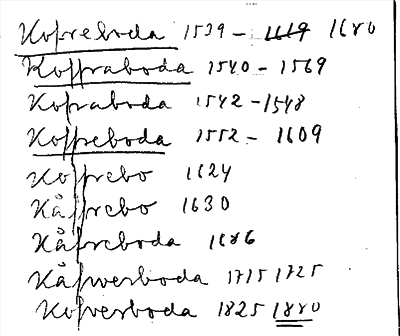 Kopreboda 1539 – 1619 1680
Koppraboda 1540 – 1569
Kopraboda 1542 – 1548
Koppreboda 1552 – 1609
Kopprebo 1624
Kåpprebo 1630
Kåpreboda 1686
Kåpwerboda 1715 1725
Kopverboda 1825 1880